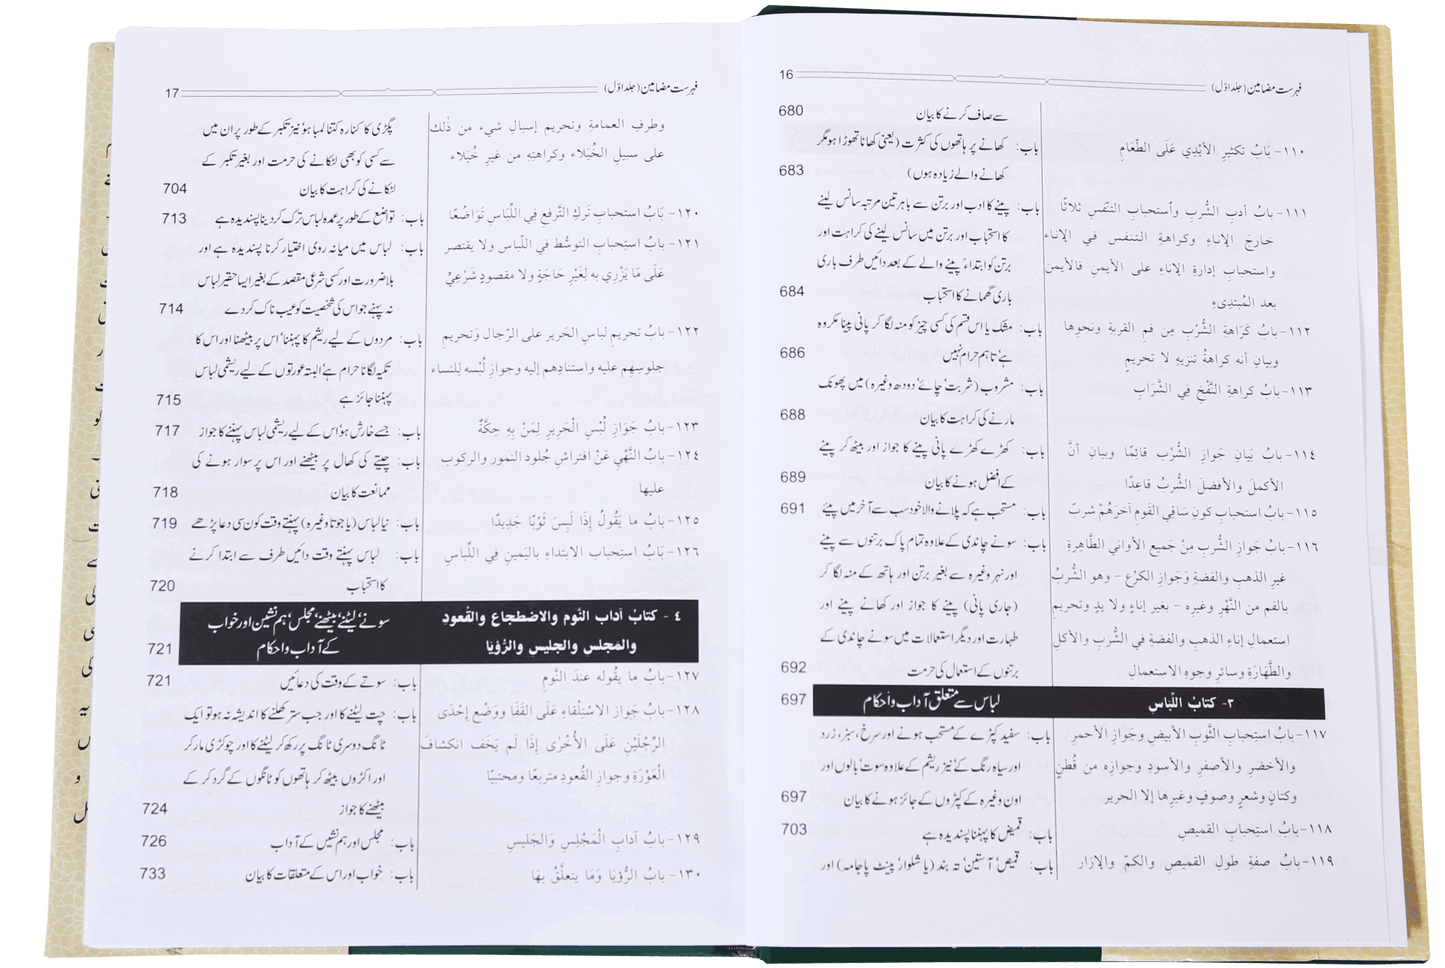 فہرست مضامین (جلد اوّل) 16
سے صاف کرنے کا بیان 680
١١٠- بَابُ تكثيرِ الأيْدِي عَلَى الطَّعَامِ باب: کھانے پر ہاتھوں کی کثرت (یعنی کھانا تھوڑا ہو مگر
کھانے والے زیادہ ہوں) 683
١١١- بابُ أدبِ الشُّربِ واستحبابِ التنَفُّسِ ثلاثًا باب: پینے کا ادب اور برتن سے باہر تین مرتبہ سانس لینے
خارجَ الإناءِ وكراهةِ التنفس في الإناء کا استحباب اور برتن میں سانس لینے کی کراہت اور
واستحبابِ إدارةِ الإناءِ على الأيمنِ فالأيمنِ برتن کو ابتداءً پینے والے کے بعد دائیں طرف باری
بعد المُبتدِیءِ باری گھمانے کا استحباب 684
١١٢- بابُ كَرَاهَةِ الشُّرْبِ مِن فمِ القربةِ ونحوِها باب: مشک یا اس قسم کی کسی چیز کو منہ لگا کر پانی پینا مکروہ
وبيانِ أنه كراهةُ تنزيهٍ لا تحريمٍ ہے، تاہم حرام نہیں 686
١١٣- بابُ كراهةِ النَّفْخِ فِي الشَّرَابِ باب: مشروب (شربت، چائے، دودھ وغیرہ) میں پھونک
مارنے کی کراہت کا بیان 688
١١٤- بابُ بَيَانِ جَوازِ الشُّرْبِ قائِمًا وبيانِ أنَّ باب: کھڑے کھڑے پانی پینے کا جواز اور بیٹھ کر پینے
الأكملَ والأفضلَ الشُّربُ قاعِدًا کے افضل ہونے کا بیان 689
١١٥- بابُ استحبابِ كونِ سَاقِي القَومِ آخِرَهُمْ شربً باب: مستحب ہے کہ پلانے والا خود سب سے آخر میں پیئے 691
١١٦- بابُ جَوازِ الشُّربِ مِنْ جَميعِ الأواني الطَّاهِرةِ باب: سونے چاندی کے علاوہ تمام پاک برتنوں سے پینے
غيرِ الذهبِ والفضةِ وَجَوازِ الكَرْعِ - وهو الشُّربُ اور نہر وغیرہ سے بغیر برتن اور ہاتھ کے منہ لگا کر
بالفمِ من النَّهْرِ وغيرِه - بغير إناءٍ ولا يدٍ وتحريمِ (جاری پانی) پینے کا جواز اور کھانے پینے اور
استعمالِ إناءِ الذهبِ والفضةِ في الشُّربِ والأكلِ طہارت اور دیگر استعمالات میں سونے چاندی کے
والطَّهَارَةِ وسائرِ وجوهِ الاستعمالِ برتنوں کے استعمال کی حرمت 692
٣- كتابُ اللِّباسِ لباس سے متعلق آداب و احکام 697
١١٧- بابُ استِحبابِ الثَّوبِ الأبيضِ وجَوازِ الأحمرِ باب: سفید کپڑے کے مستحب ہونے اور سرخ، سبز، زرد
والأخضرِ والأصفرِ والأسودِ وجوازِه من قُطنٍ اور سیاہ رنگ کے، نیز ریشم کے علاوہ سوت، بالوں اور
وكتانٍ وشعرٍ وصوفٍ وغيرِها إلا الحرير اون وغیرہ کے کپڑوں کے جائز ہونے کا بیان 697
١١٨- بابُ استِحبابِ القميصِ باب: قمیض کا پہننا پسندیدہ ہے 703
١١٩- بابُ صفةِ طولِ القميصِ والكمِّ والإزار باب: قمیص، آستین، تہ بند (یا شلوار، پینٹ پاجامہ) اور
فہرست مضامین (جلد اوّل) 17
وطرفِ العمامةِ وتحريمِ إسبالِ شيءٍ من ذٰلك پگڑی کا کنارہ کتنا لمبا ہو، نیز تکبر کے طور پر ان میں
على سبيلِ الخُيَلاء وكراهتِهِ من غيرِ خُيَلاء سے کسی کو بھی لٹکانے کی حرمت اور بغیر تکبر کے
لٹکانے کی کراہت کا بیان 704
١٢٠- بَابُ استحبابِ تَركِ التَّرفعِ فِي اللِّبَاسِ تَوَاضُعًا باب: تواضع کے طور پر عمدہ لباس ترک کر دینا پسندیدہ ہے 713
١٢١- بابُ استِحبابِ التوسُّط في اللّباسِ ولا يقتصر باب: لباس میں میانہ روی اختیار کرنا پسندیدہ ہے اور
عَلَى مَا يَزْرِي به لِغَيْرِ حَاجَةٍ ولا مقصودٍ شَرْعِيٍّ بلا ضرورت اور کسی شرعی مقصد کے بغیر ایسا حقیر لباس
نہ پہنے جو اس کی شخصیت کو عیب ناک کر دے 714
١٢٢- بابُ تحريمِ لباسِ الحَريرِ على الرِّجالِ وَتحريمِ باب: مردوں کے لیے ریشم کا پہننا، اس پر بیٹھنا اور اس کا
جلوسِهِم عليه واستنادِهم إليه وجوازِ لُبْسِه لِلنساء تکیہ لگانا حرام ہے، البتہ عورتوں کے لیے ریشمی لباس
پہننا جائز ہے 715
١٢٣- بابُ جَوَازِ لُبْسِ الْحَرِيرِ لِمَنْ بِهِ حِكَّةٌ باب: جسے خارش ہو، اس کے لیے ریشمی لباس پہننے کا جواز 717
١٢٤- بابُ النَّهْيِ عَنْ افتراشِ جُلودِ النمورِ والركوب باب: چیتے کی کھال پر بیٹھنے اور اس پر سوار ہونے کی
عليها ممانعت کا بیان 718
١٢٥- بابُ ما يَقُولُ إذَا لَبِسَ ثَوْبًا جَدِيدًا باب: نیا لباس (یا جوتا وغیرہ) پہنتے وقت کون سی دعا پڑھے 719
١٢٦- بَابُ استحباب الابتداءِ باليَمينِ فِي اللِّباسِ باب: لباس پہنتے وقت دائیں طرف سے ابتدا کرنے
کا استحباب 720
٤ - كتابُ آداب النَّوم والاضطجاع والقُعودِ سونے، لیٹنے، بیٹھنے، مجلس، ہم نشین اور خواب
والمَجلسِ والجليسِ والرُّؤيَا کے آداب و احکام 721
١٢٧- بابُ ما يقُوله عندَ النَّومِ باب: سوتے کے وقت کی دعائیں 721
١٢٨- بابُ جَوازِ الاسْتِلْقاءِ عَلَى القَفَا ووَضْعِ إحْدَى باب: چت لیٹنے کا اور جب ستر کھلنے کا اندیشہ نہ ہو تو ایک
الرِّجْلَيْنِ عَلَى الأُخْرَى إذَا لَم يَخَفْ انكشافَ ٹانگ دوسری ٹانگ پر رکھ کر لیٹنے کا اور چوکڑی مار کر
الْعَوْرَةِ وجوازِ القُعودِ متربعًا ومحتبيًا اور اکڑوں بیٹھ کر ہاتھوں کو ٹانگوں کے گرد کر کے
بیٹھنے کا جواز 724
١٢٩- بابُ آدابِ الْمَجْلِسِ وَالجَليسِ باب: مجلس اور ہم نشیں کے آداب 726
١٣٠- بابُ الرُّؤيَا وَمَا يتعلَّقُ بِهَا باب: خواب اور اس کے متعلقات کا بیان 733